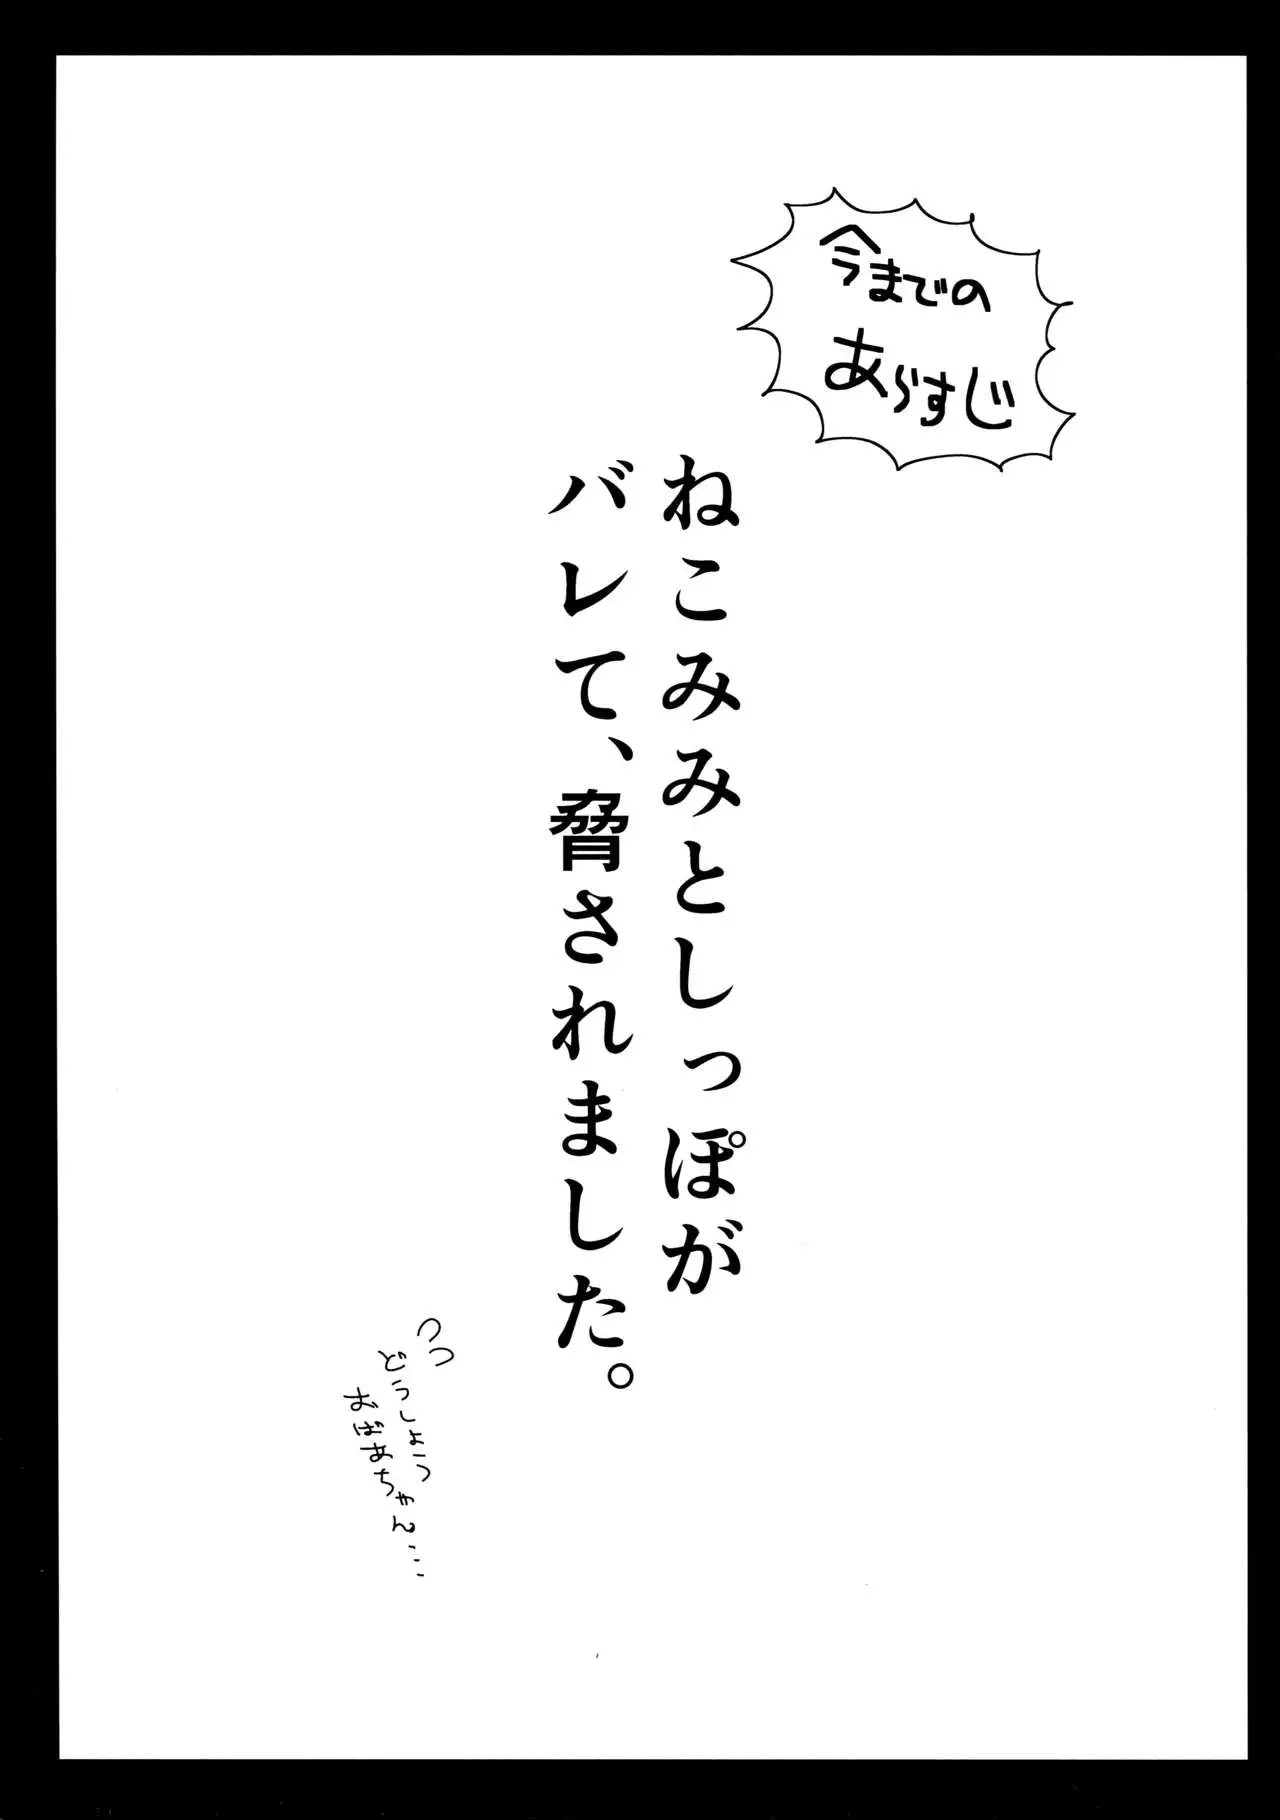 今までの
あらすじ
ねこみみとしっぽが
バレて、脅されました。
うつ
どうしよう
おばあちゃん…